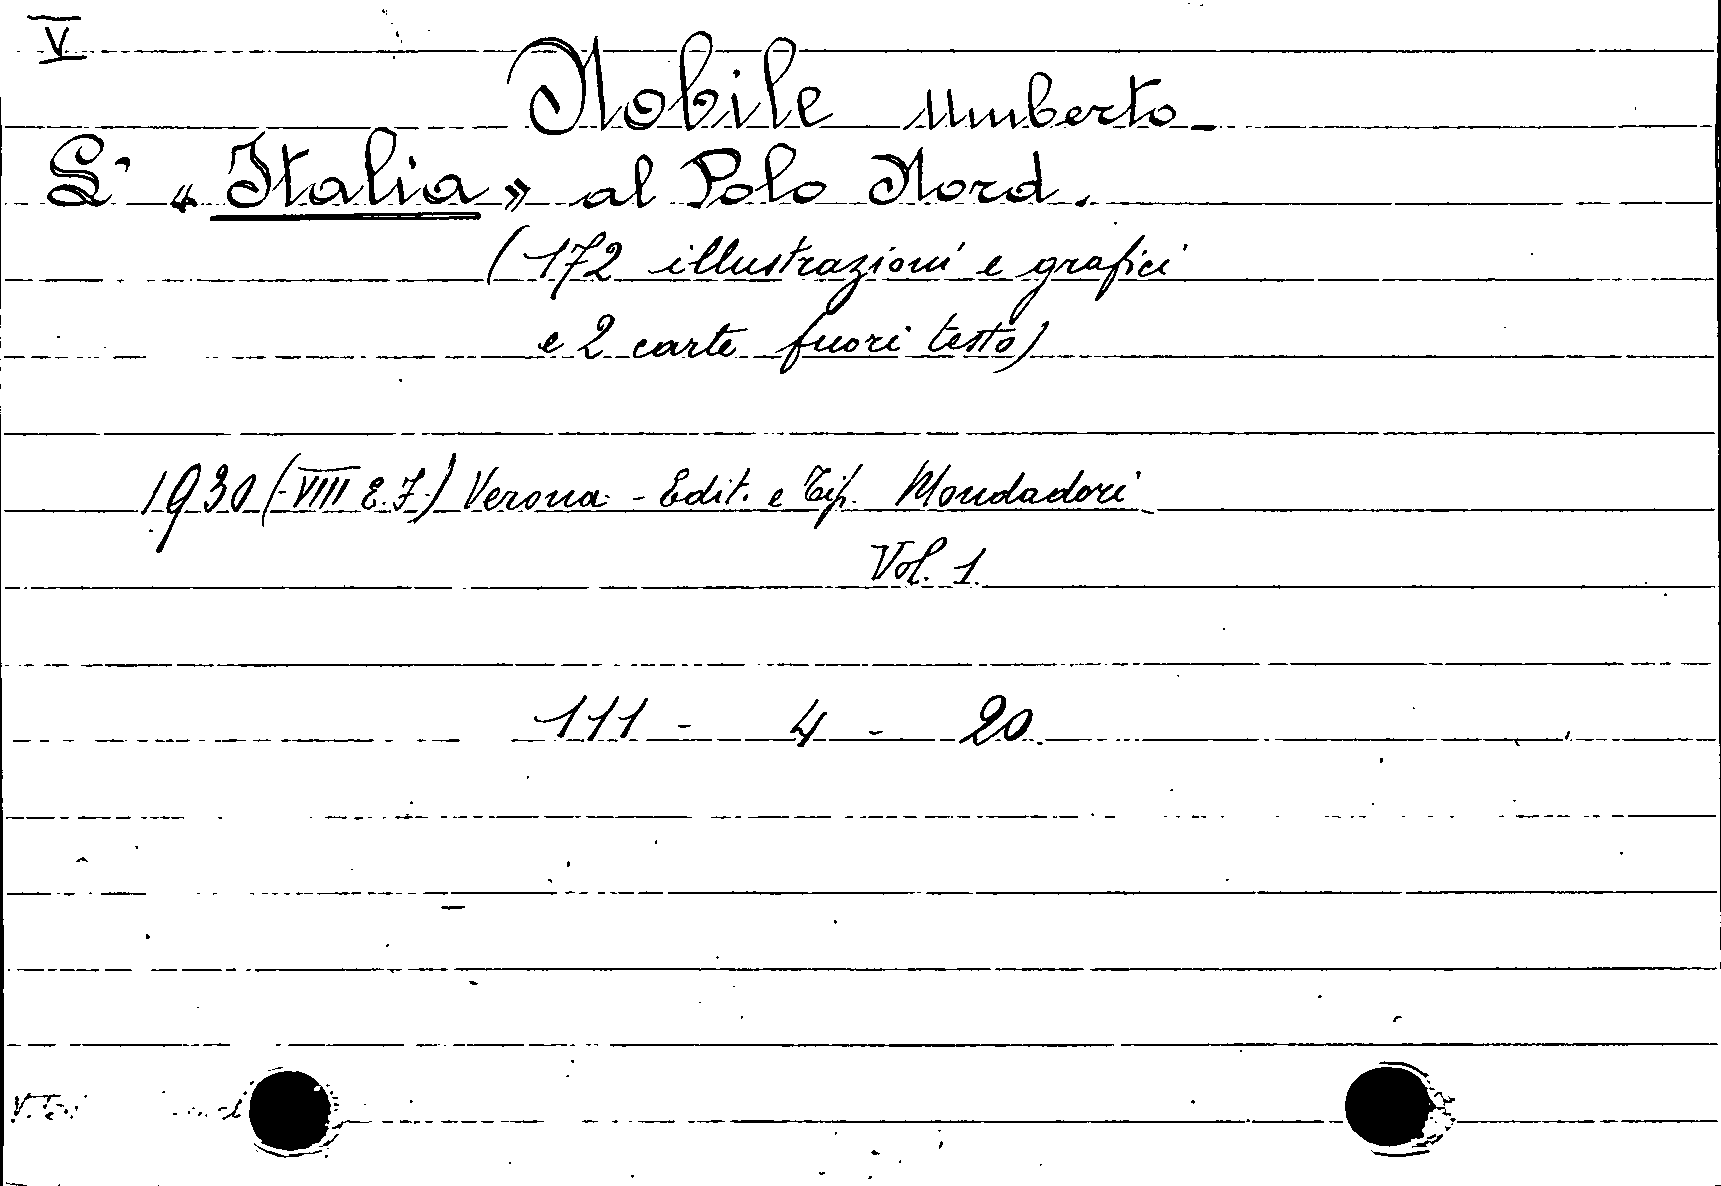 V
Nobile Umberto-
L' "Italia" al Polo Nord.
(172 illustrazioni e grafici
e 2 carte fuori testo)
1930 (VIII E.F.) Verona - Edit. e Tip. Mondadori
Vol. 1
111 - 4 - 20